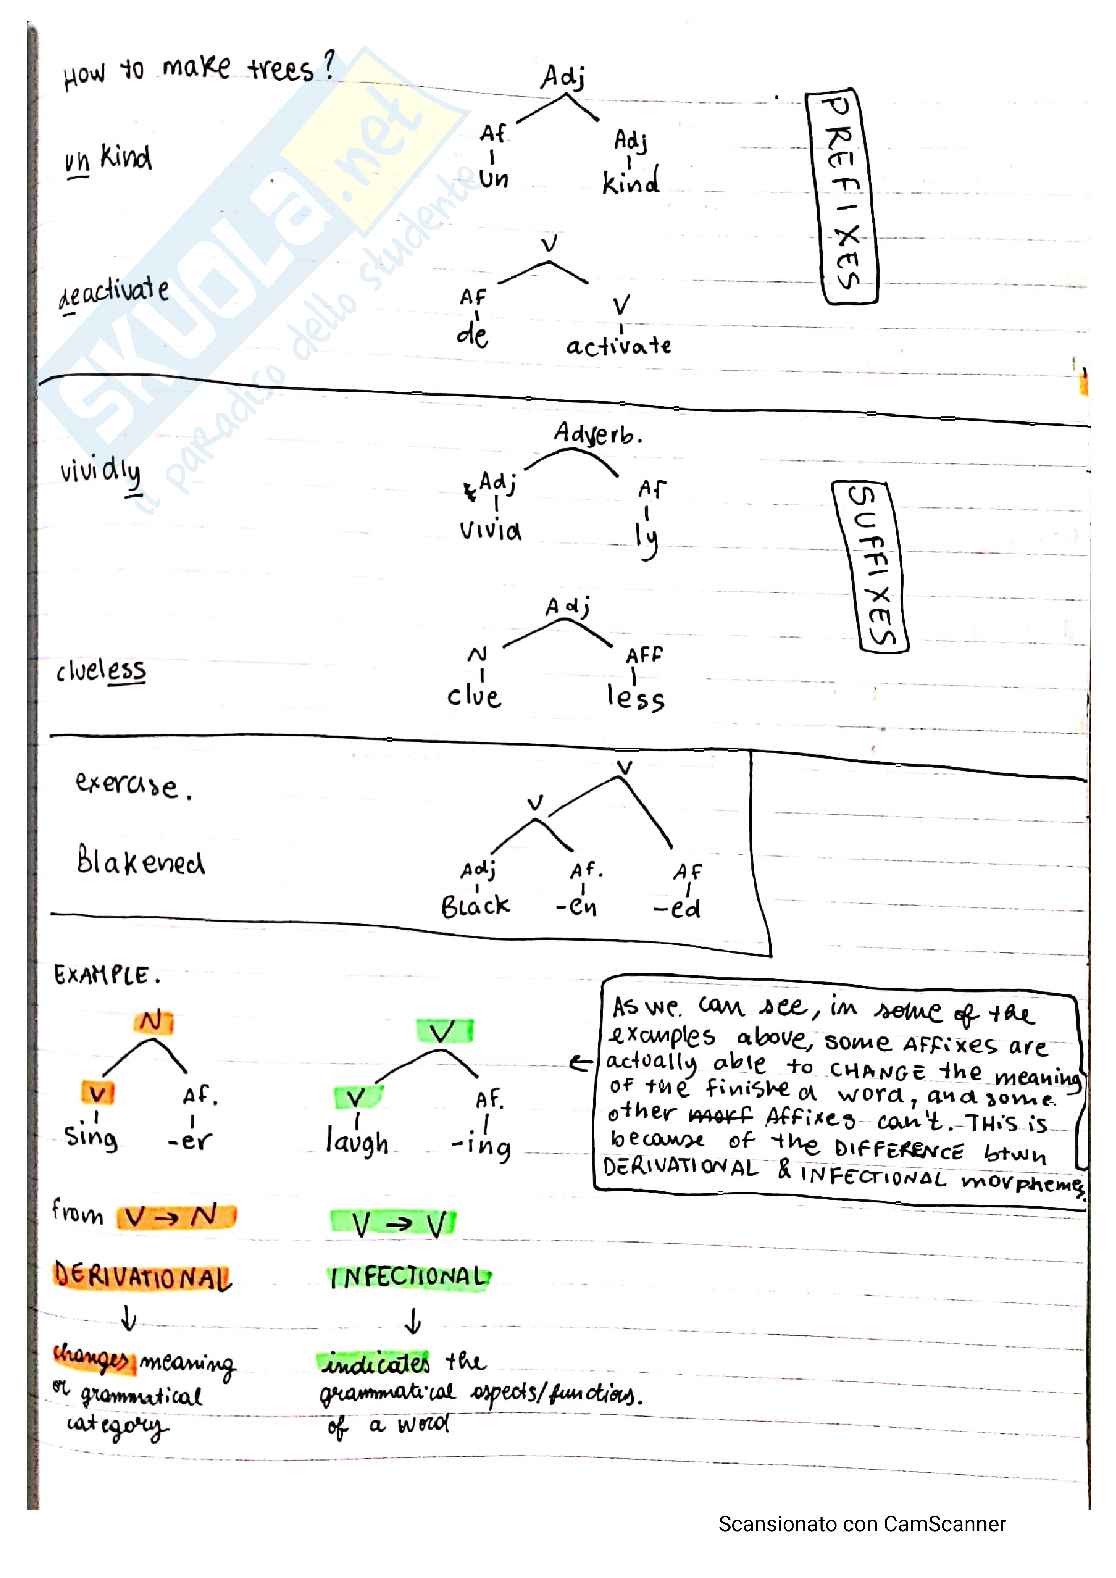 How to make trees?
Adj
Af Adj
un kind
un kind
PREFIXES
V
deactivate
Af V
de activate
Adverb.
vividly
Adj Af
vivid ly
SUFFIXES
Adj
clueless
N AFF
clue less
exercise.
V
V
Blakened
Adj Af. Af
Black -en -ed
EXAMPLE.
N V
V Af. V AF.
sing -er laugh -ing
As we can see, in some of the
examples above, some Affixes are
actually able to CHANGE the meaning
of the finished word, and some
other morf Affixes can't. THis is
because of the DIFFERENCE btwn
DERIVATIONAL & INFECTIONAL morphemes.
from V → N V → V
DERIVATIONAL INFECTIONAL
changes meaning indicates the
or grammatical grammatical aspects/functions.
category of a word
SKUOLA.net
il paradiso dello studente
Scansionato con CamScanner